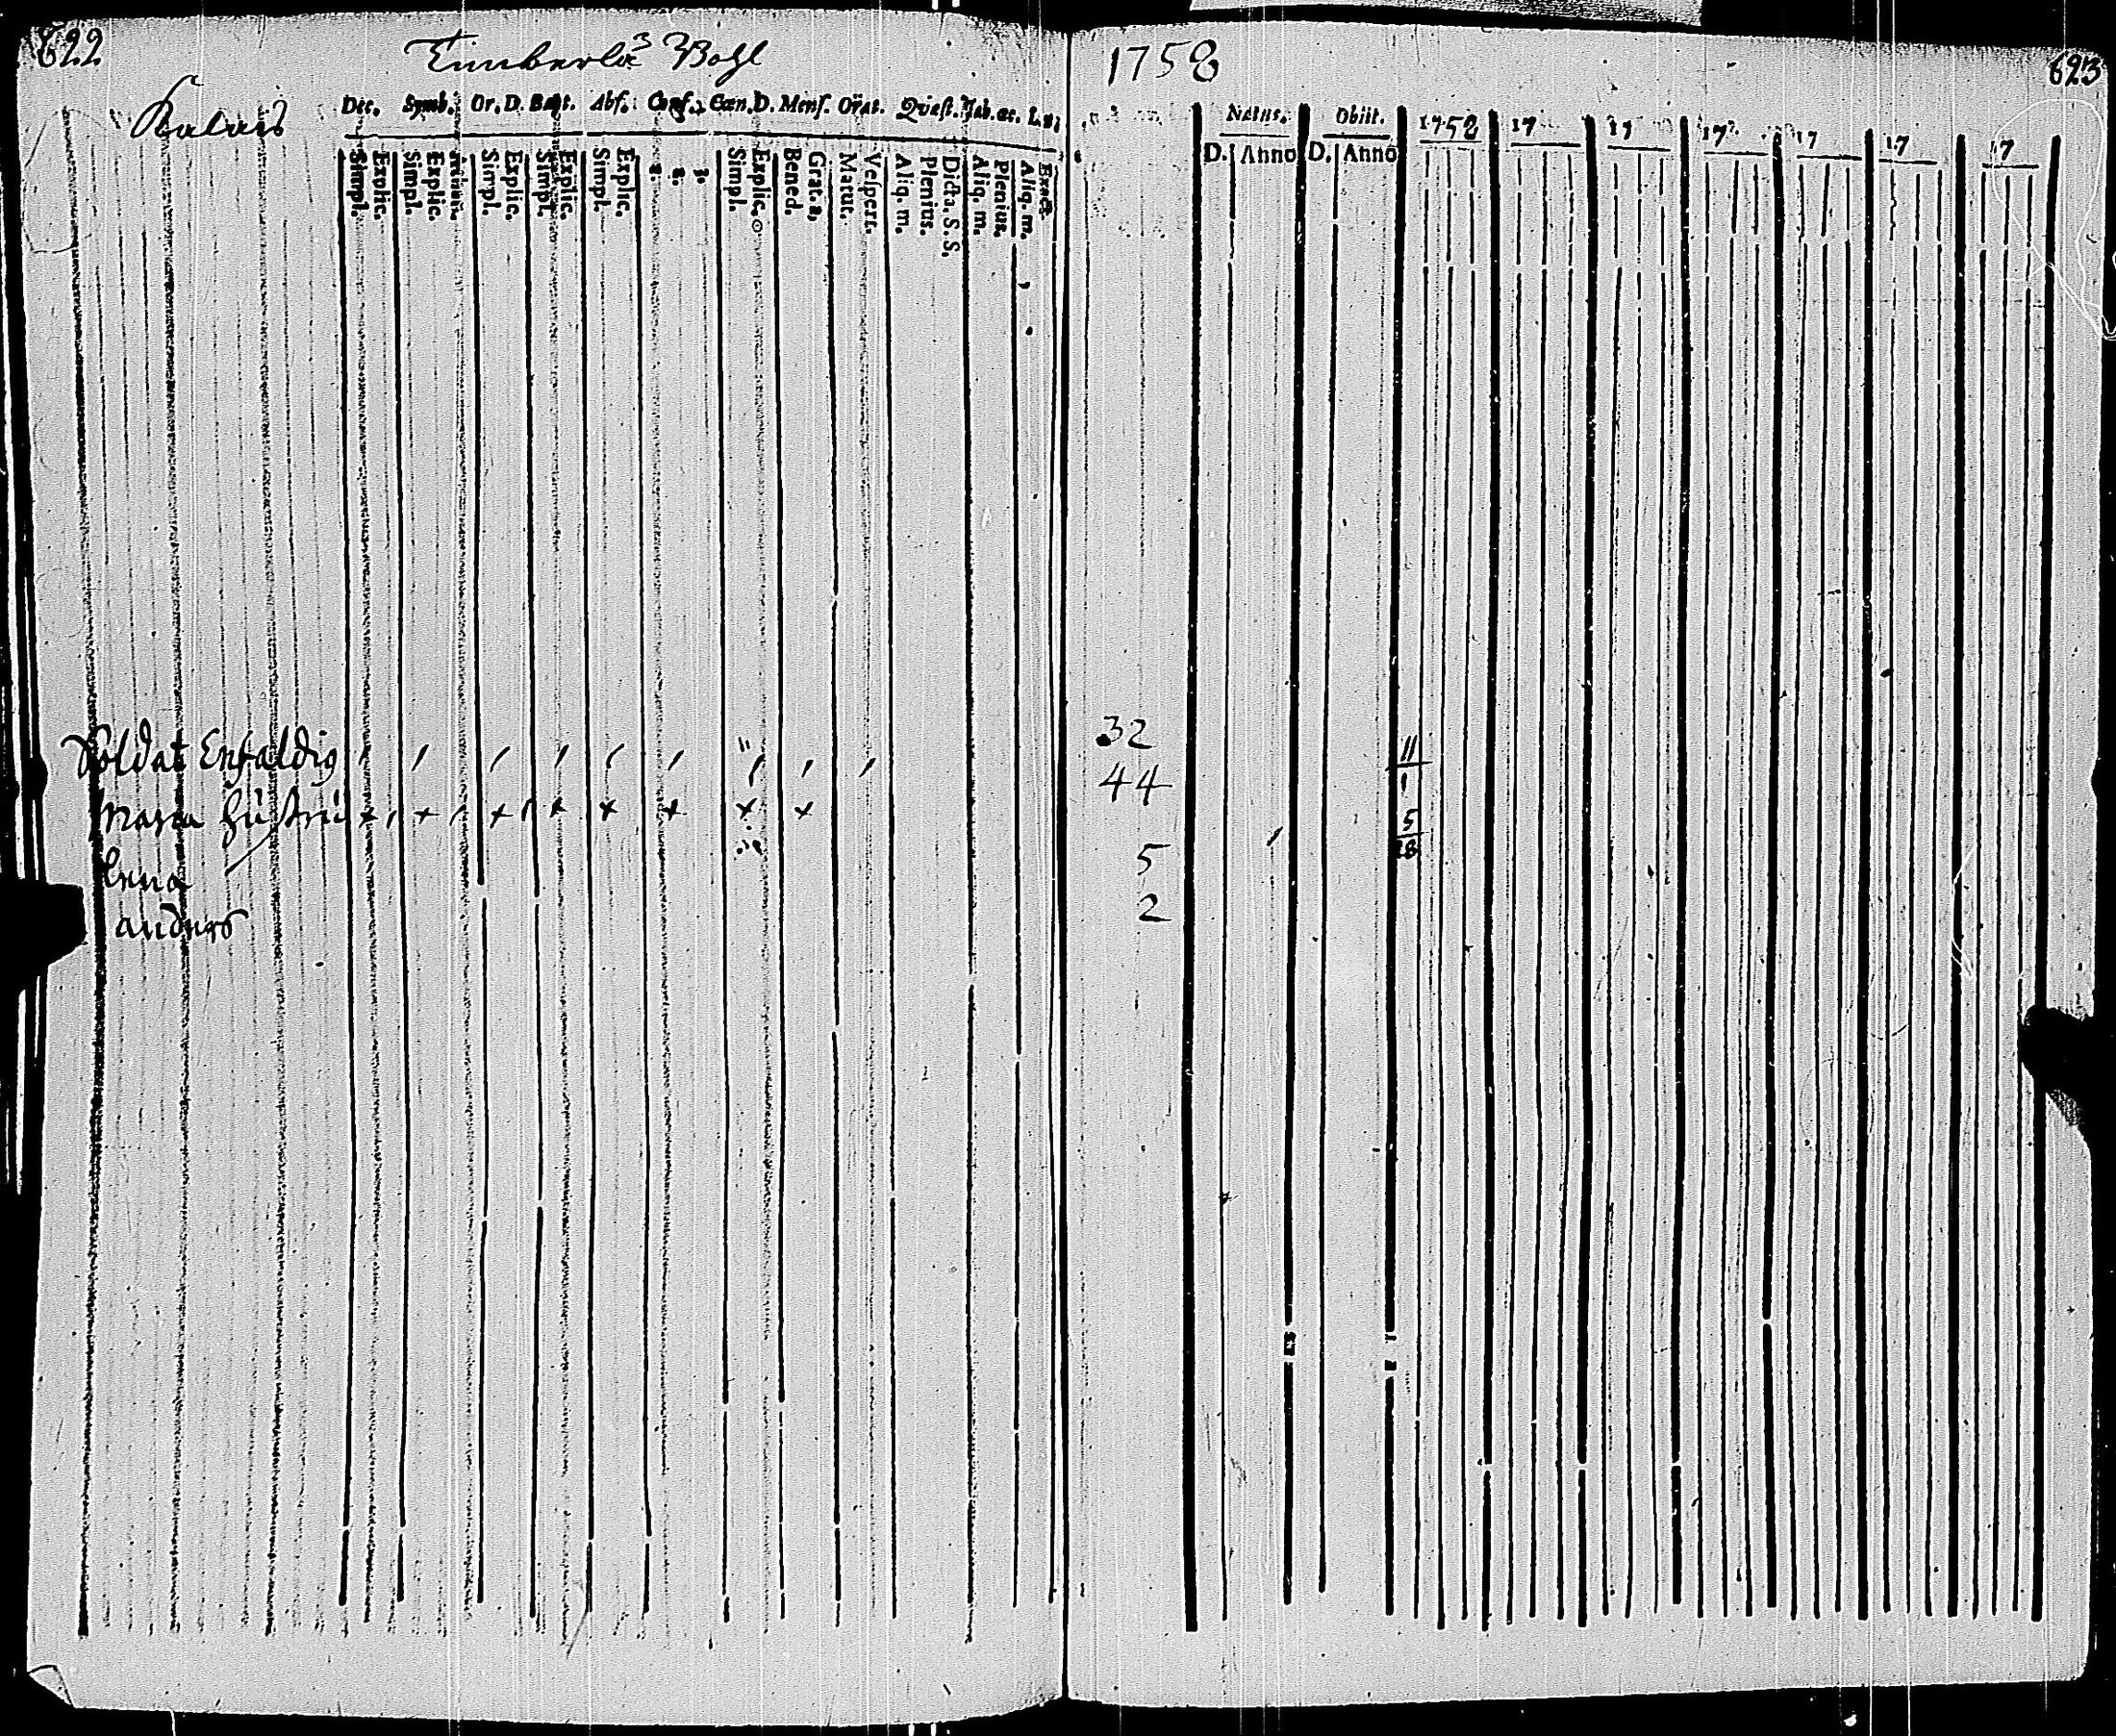 622
Kalais
Dec. Symb. Or. D. Bapt. Abs. Conf. Cœn. D. Mens. Orat. Quæst. Tab. œc. L. n:
Simpl. Explic. Simpl. Explic. Simpl. Explic. Simpl. Explic. Simpl. Explic. 1. 2. 3. Simpl. Explic. Bened. Grat. a. Matut. Vespert. Aliq. m. Plenius. Dicta. S. S. Aliq. m. Plenius. Aliq. m. Exact.
Soldat Enfaldig
Maria hustru
Lena
anders
1758
623
Natus. Obiit. 1758 17 17 17 17 17 17
D. Anno D. Anno
32
11
1
44
5
18
5
2